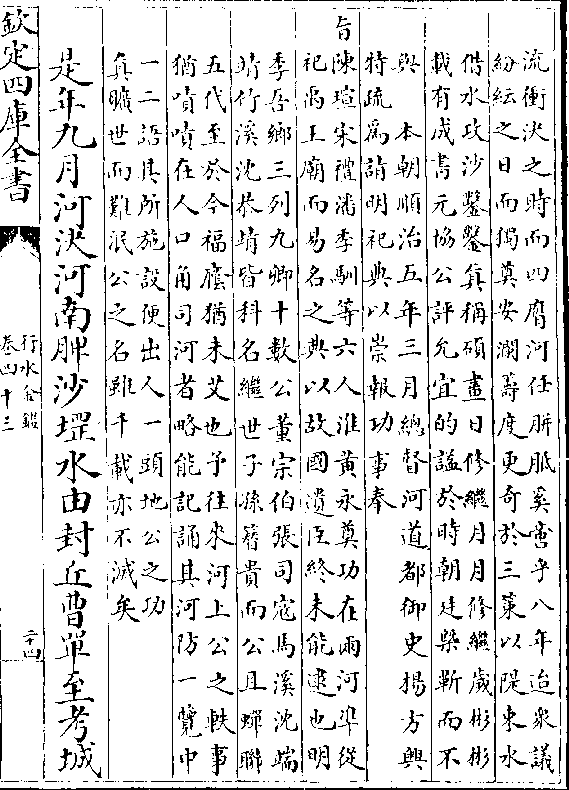 流衝決之時而四膺河任胼胝奚啻乎八年迨衆議
紛紜之日而獨奠安瀾籌度更奇於三策以隄束水
借水攻沙鑿鑿真稱碩畫日修繼月月修繼歲彬彬
載有成書元協公評允宜的謚於時朝廷槩靳而不
與 本朝順治五年三月總督河道都御史楊方興
特疏爲請明祀典以崇報功事奉
旨陳瑄宋禮潘季馴等六人淮黄永奠功在兩河準從
祀禹王廟而易名之典以故國遺臣終未能逮也明
季吾鄉三列九卿十數公董宗伯張司寇馬溪沈端
靖竹溪沈恭靖皆科名繼世子孫簪貴而公且蟬聯
五代至於今福廕猶未艾也予往來河上公之軼事
猶嘖嘖在人口角司河者略能記誦其河防一覽中
一二語其所施設便出人一頭地公之功
真曠世而難泯公之名雖千載亦不滅矣
是年九月河決河南脾沙堽水由封丘曹單至考城
欽定四庫全書
行水金鑑
卷四十三
二十四